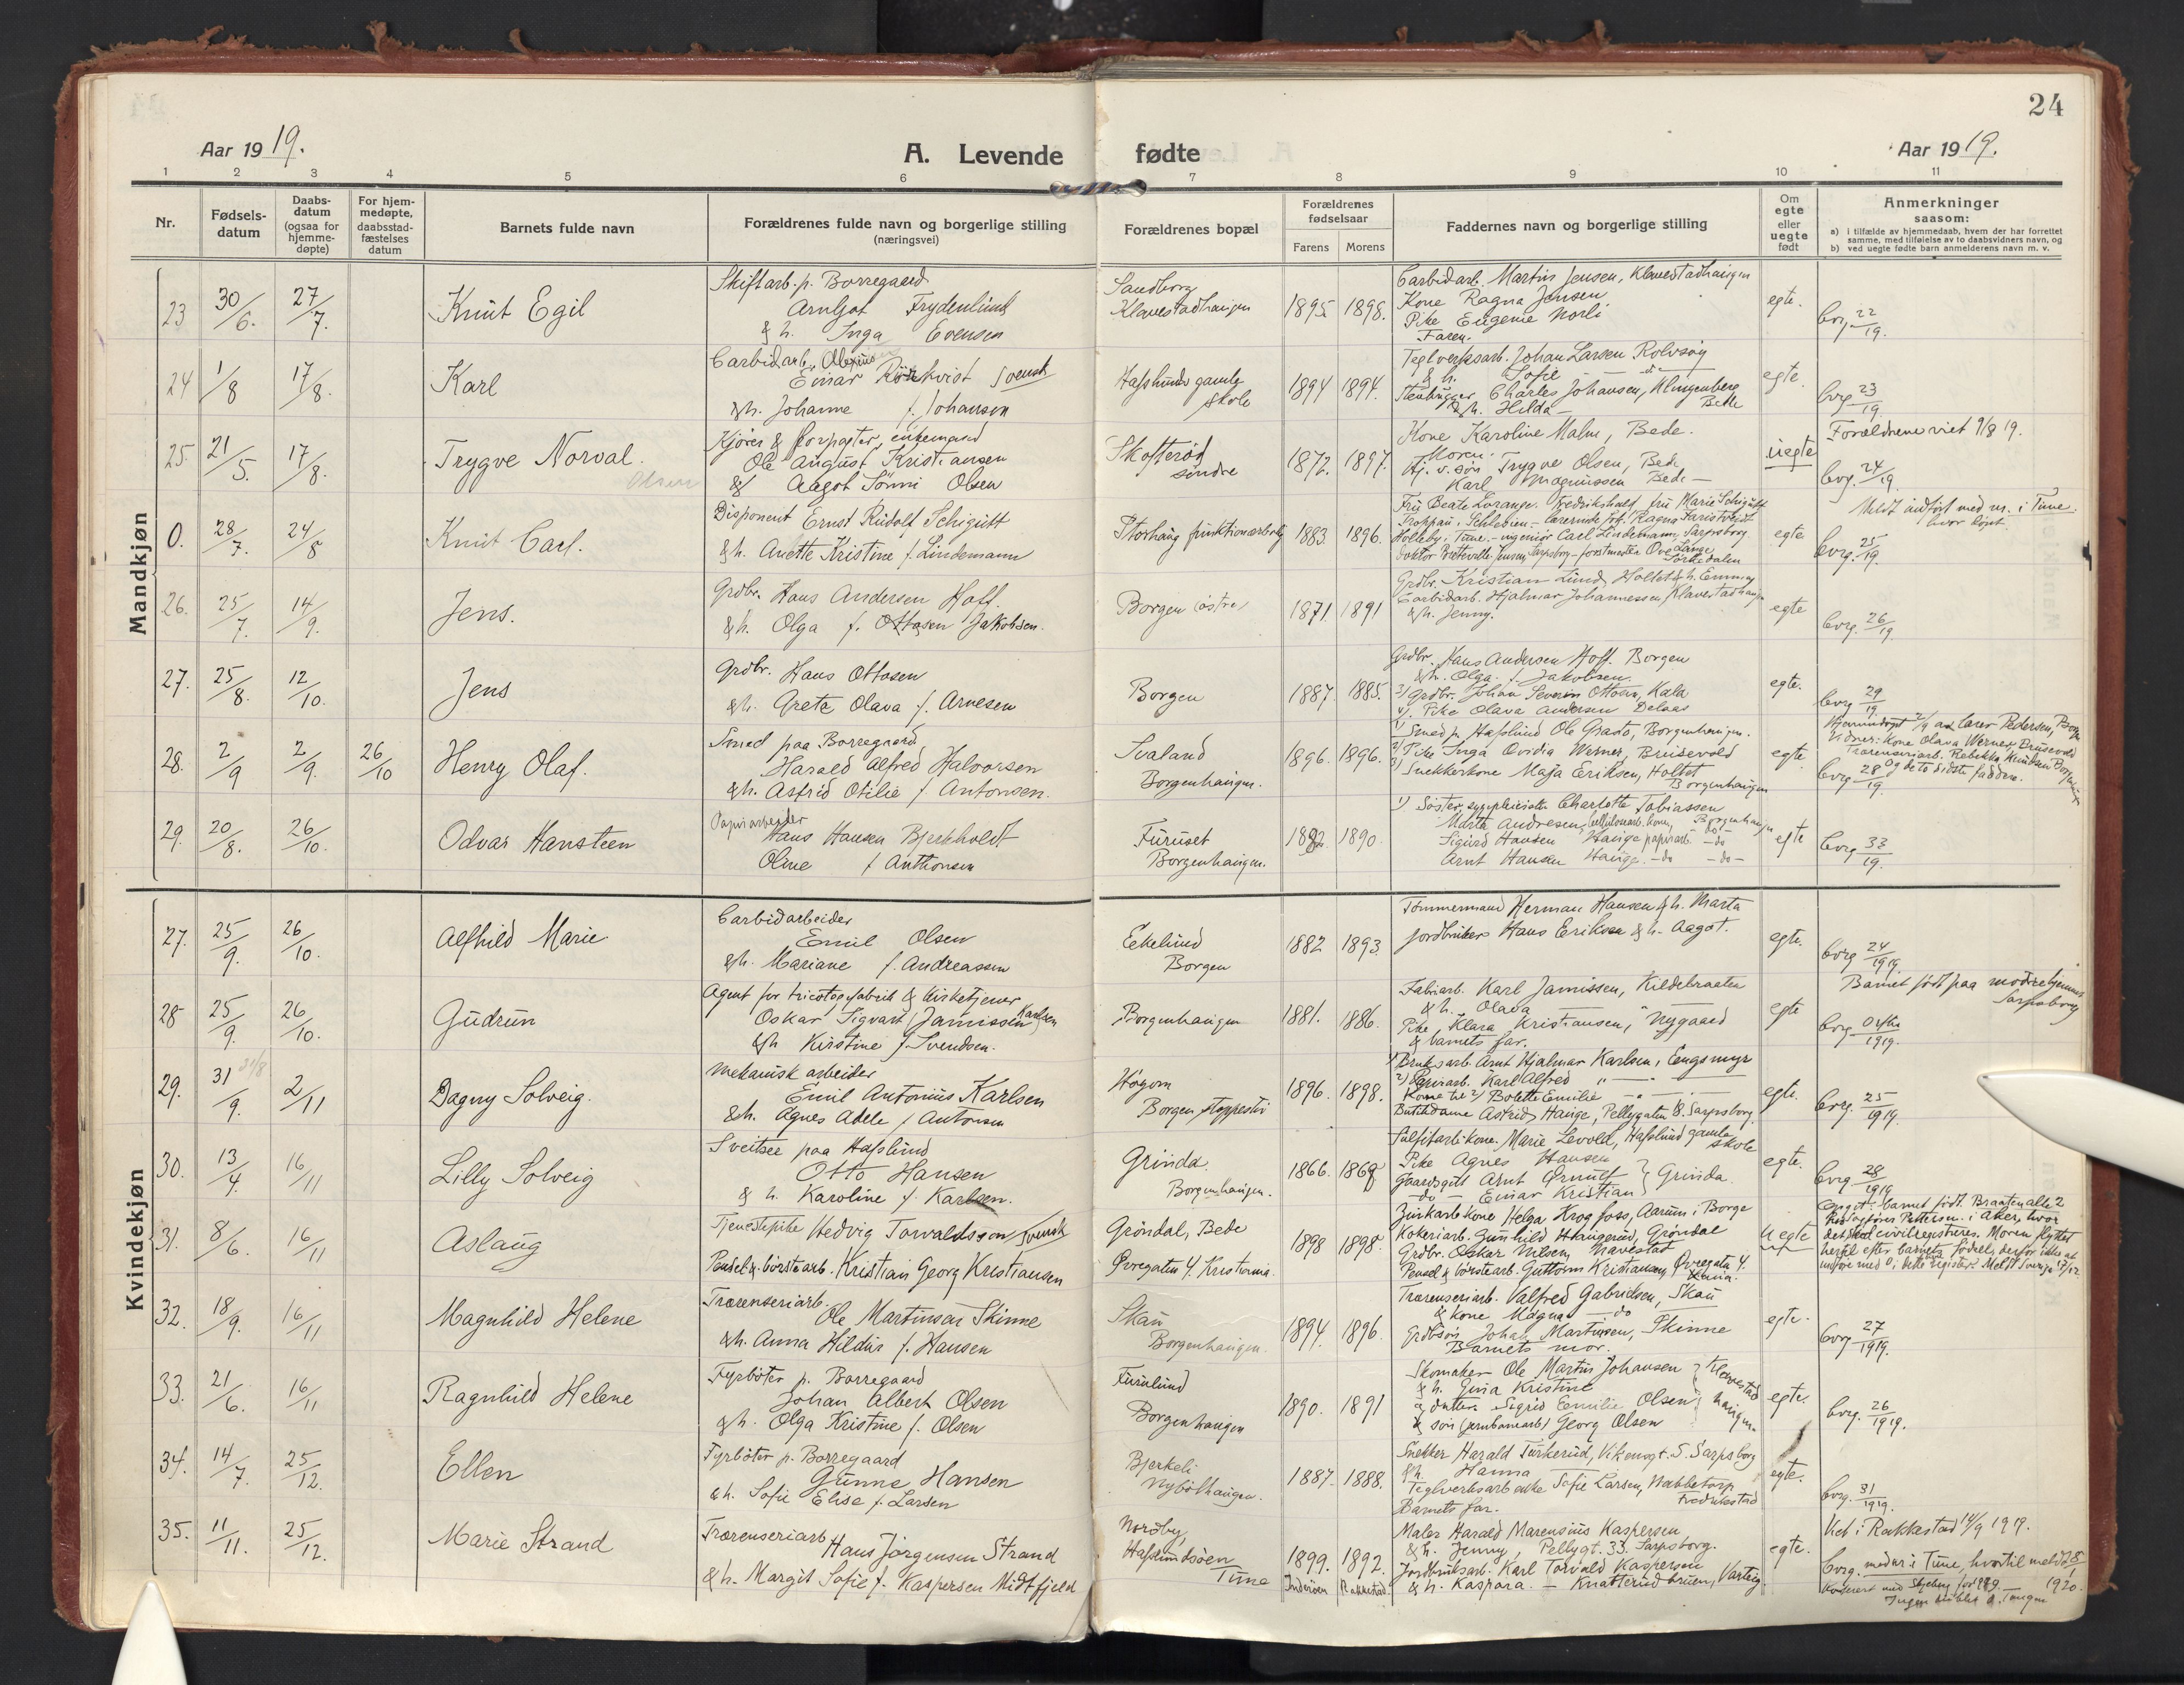 24
Aar 1919.
A. Levende fødte
Aar 1919.
1 2 3 4 5 6 7 8 9 10 11
Nr.
Fødsels-
datum
Daabs-
datum
(ogsaa for
hjemme-
døpte)
For hjem-
medøpte,
daabsstad-
fæstelses
datum
Barnets fulde navn
Forældrenes fulde navn og borgerlige stilling
(næringsvei)
Forældrenes bopæl
Forældrenes
fødselsaar
Farens Morens
Faddernes navn og borgerlige stilling
Om
egte
eller
uegte
født
Anmerkninger
saasom:
a) i tilfælde av hjemmedaab, hvem der har forrettet
samme, med tilføielse av to daabsvidners navn, og
b) ved uegte fødte barn anmelderens navn m. v.
Mandkjøn
23 30/6. 27/7. Knut Egil
Skiftarb. p. Borregaard
Arnljot Frydenlund
& h. Inga Evensen
Sandborg
Klavestadhaugen
1895 1898.
Carbidarb. Martin Jensen, Klavestadhaugen
Kone Ragna Jensen
Pike Eugenie Norli
Faren.
egte.
Borg. 22/19.
24 1/8 17/8. Karl
Carbidarb. Alexius
Einar svensk
& h. Johanne f. Johansen
Hafslunds gamle
skole
1894 1894.
Teglverksarb. Johan Larsen Rolvsøy
& h. Sofie — do —
Charles Johansen, Klingenberg
& h. Hilda — Bede
egte.
Borg 23/19
25 21/5. 17/8. Trygve Norval.
Olsen
Kjører & forpagter, enkemand
Ole August Kristiansen
& Aagot Sønni Olsen
Skofterød
søndre
1872. 1897.
Kone Karoline Malm, Bede.
Moren.
Trygve Olsen, Bede
Karl Magnussen Bede —
uegte
Forældrene viet 9/8 19.
Borg. 24/19.
0. 28/7. 24/8 Knut Carl.
Disponent Ernst Rudolf Schigutt
& h. Anette Kristine f. Lindemann
Storhaug funktionærbolig
1883. 1896.
Fru Beate Lorange. Fredrikshald, fru Marie Schigutt
Troppau, Schlesien — lærerinde frk. Ragna
Holleby i Tune. — ingeniør Carl Lindemann, Sarpsborg
doktor Jensen, Sarpsborg — forstmester Ove Lange
Sørkedalen
egte
Meldt indført med nr. i Tune.
hvor døpt.
Borg. 25/19.
26. 25/7. 14/9. Jens.
Grdbr. Hans Andersen Hoff.
& h. Olga f. Ottosen Jakobsen.
Borgen østre
1871 1891
Grdbr. Kristian Lund Holtet & h. Emmy
Carbidarb. Hjalmar Johannessen Klavestadhaug.
& h. Jenny.
egte
Borg. 26/19.
27. 25/8. 12/10. Jens
Grdbr. Hans Ottosen
& h. Grete Olava f. Arnesen
Borgen
1887. 1885.
Grdbr. Hans Andersen Hoff. Borgen
& h. Olga. f. Jakobsen.
3) Grdbr. Johan Severin Ottosen, Kala
4) Pike Olava Andersen Delaas
egte.
Borg 29/19
28. 2/9 2/9. 26/10 Henry Olaf.
Smed paa Borregaard
Harald Alfred Halvorsen
& h. Astrid Otilie f. Antonsen.
Svaland
Borgenhaugen.
1896. 1896.
1) Smed p. Hafslund Ole Graae, Borgenhaugen.
2) Pike Inga Ovidia Werner, Brusevold
3) Snekkerkone Maja Eriksen, Holtet
Borgenhaugen
egte
Hjemmedøpt 2/9 av lærer Pedersen, Borgen
Vidner: Kone Olava Werner Brusevold
Træsenseriarb. Rebekka Knudsen Borgenhaugen
og de to sidste faddere.
Borg 28/19.
29. 20/8. 26/10. Odvar Hansteen
Papirarbeider
Hans Hansen Bjerkholdt
Oline f Anthonsen
Furuset
Borgenhaugen.
1892. 1890.
1) Søster, sygepleierske Charlotte Tobiassen
Marta Andresen, cellulosearb. kone, Borgenhaugen
Sigurd Hansen Hauge papirarb. — do —
Arnt Hansen Hauge — do — do —
egte
Borg 33/19.
Kvindekjøn
27. 25/9. 26/10. Alfhild Marie
Carbidarbeider
Emil Olsen
& h. Mariane f. Andreassen
Eekelund
Borgen
1882 1893.
Tømmermand Herman Hansen & h. Marta
Jordbruker Hans Eriksen & h. Aagot.
egte.
Borg 24/1919
28 25/9. 26/10. Gudrun
Agent for tricotagefabrik & kirketjener
Oskar Sigvart Jamissen Karlsen
& h Kirstine f. Svendsen.
Borgenhaugen
1881. 1886.
Fabriarb. Karl Jamissen, Kildebraaten
& h. Olava —
Pike, Klara Kristiansen, Nygaard
& barnets far.
egte
Barnet født paa mødrehjemmet
Sarpsborg
Borg 1919.
29. 31/9. 31/8 2/11 Dagny Solveig.
Mekanisk arbeider
Emil Antonius Karlsen
& h. Agnes Adele f Antonsen
Borgen stoppested
1896. 1898.
1) Bruksarb. Arnt Hjalmar Karlsen, Eengsmyr
2) Papirarb. Karl Alfred " — " —
Kone til 2) Bolette Emilie — " —
Butikdame Astrid Hauge, Pellygaten 8. Sarpsborg.
egte.
Borg. 25/1919.
30. 13/4. 16/11 Lilly Solveig
Sveitser paa Hafslund
Otto Hansen
& h. Karoline f. Karlsen.
Grinda.
Borgenhaugen.
1866. 1869
Sulfitarb.kone. Marie Levold, Hafslund gamle
skole
Pike Agnes Hansen
Gaardsgut Arnt Ørnulf } Grinda.
— do — Einar Kristian
egte.
Borg. 28/1919
31. 8/6. 16/11 Aslaug
Tjenestepike Hedvig Torvaldsson svensk
Pensel & børstearb. Kristian Georg Kristiansen
Grøndal, Bede
Øvregaten 4. Kristiania.
1898 1898.
Zinkarb.kone Helga Krogfoss, Aarum i Borge
Kokeriarb. Gunhild Haugerud, Grøndal
Grdbr. Oskar Nilsen Navestad
Pensel & børstearb. Guttorm Kristiansen, Øvregata 4.
Kr.ania.
uegte
Opgit: barnet født Braatenalle 2
hos Pettersen i Aker, hvor
det skal civilregistreres. Moren flyttet
hertil efter barnets fødsel, derfor ikke at
indføre med 0 i dette register. Meldt Sverige 17/12
32. 18/9. 16/11 Magnhild Helene
Træsenseriarb.
Ole Martinsen Skinne
& h. Anna Hildur f. Hansen
Skau
Borgenhaugen.
1894. 1896.
Træsenseriarb. Valfred Gabrielsen, Skau
& kone Magna — do
Grdbsøn Johan Martinsen, Skinne
Barnets mor.
egte.
Borg 27/1919.
33. 21/6. 16/11 Ragnhild Helene
Fyrbøter p. Borregaard
Johan Albert Olsen
& h. Olga Kristine f. Olsen
Furulund
Borgenhaugen
1890. 1891
Skomaker Ole Martin Johansen } Klavestad
& h. Gina Kristine haugen.
& datter Sigrid Emilie Olsen
& søn (jernbanearb) Georg Olsen
egte.
Borg. 26/1919.
34. 14/7. 25/12. Ellen
Fyrbøter p. Borregaard
Gunne Hansen
& h. Sofie Elise f. Larsen
Bjerkeli
Nybølhaugen.
1887. 1888.
Snekker Harald Turkerud, Vikensgt. 5. Sarpsborg
& h. Hanna —
Teglverksarb enke Sofie Larsen, Nabbetorp
Fredrikstad
Barnets far.
egte.
Borg. 31/1919.
35. 11/11. 25/12. Marie Strand
Træsenseriarb
Hans Jørgensen Strand
& h. Margit Sofie f. Kaspersen Midtfjeld
Nordby,
Hafslundsøen
Tune
1899. 1892.
Inderøen Rakkestad.
Maler Harald Marensius Kaspersen
& h. Jenny, Pellygt. 33. Sarpsborg.
Jordbruksarb. Karl Torvald Kaspersen
& h. Kaspara. — Knatterudbruen, Varteig.
egte.
Viet i Rakkestad 14/9 1919.
Borg. med nr i Tune, hvortil meldt 8/1 1920.